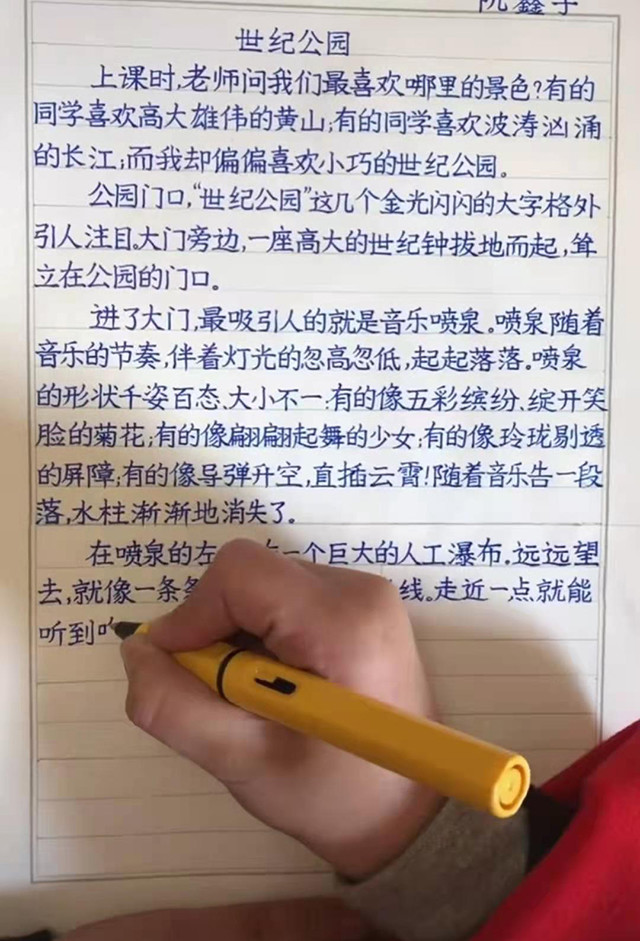 世纪公园
上课时,老师问我们最喜欢哪里的景色?有的
同学喜欢高大雄伟的黄山;有的同学喜欢波涛汹涌
的长江;而我却偏偏喜欢小巧的世纪公园。
公园门口,“世纪公园”这几个金光闪闪的大字格外
引人注目。大门旁边,一座高大的世纪钟拔地而起,耸
立在公园的门口。
进了大门,最吸引人的就是音乐喷泉。喷泉随着
音乐的节奏,伴着灯光的忽高忽低,起起落落。喷泉
的形状千姿百态、大小不一:有的像五彩缤纷、绽开笑
脸的菊花;有的像翩翩起舞的少女;有的像玲珑剔透
的屏障;有的像导弹升空,直插云霄!随着音乐告一段
落,水柱渐渐地消失了。
在喷泉的左 一个巨大的人工瀑布.远远望
去,就像一条 线。走近一点就能
听到